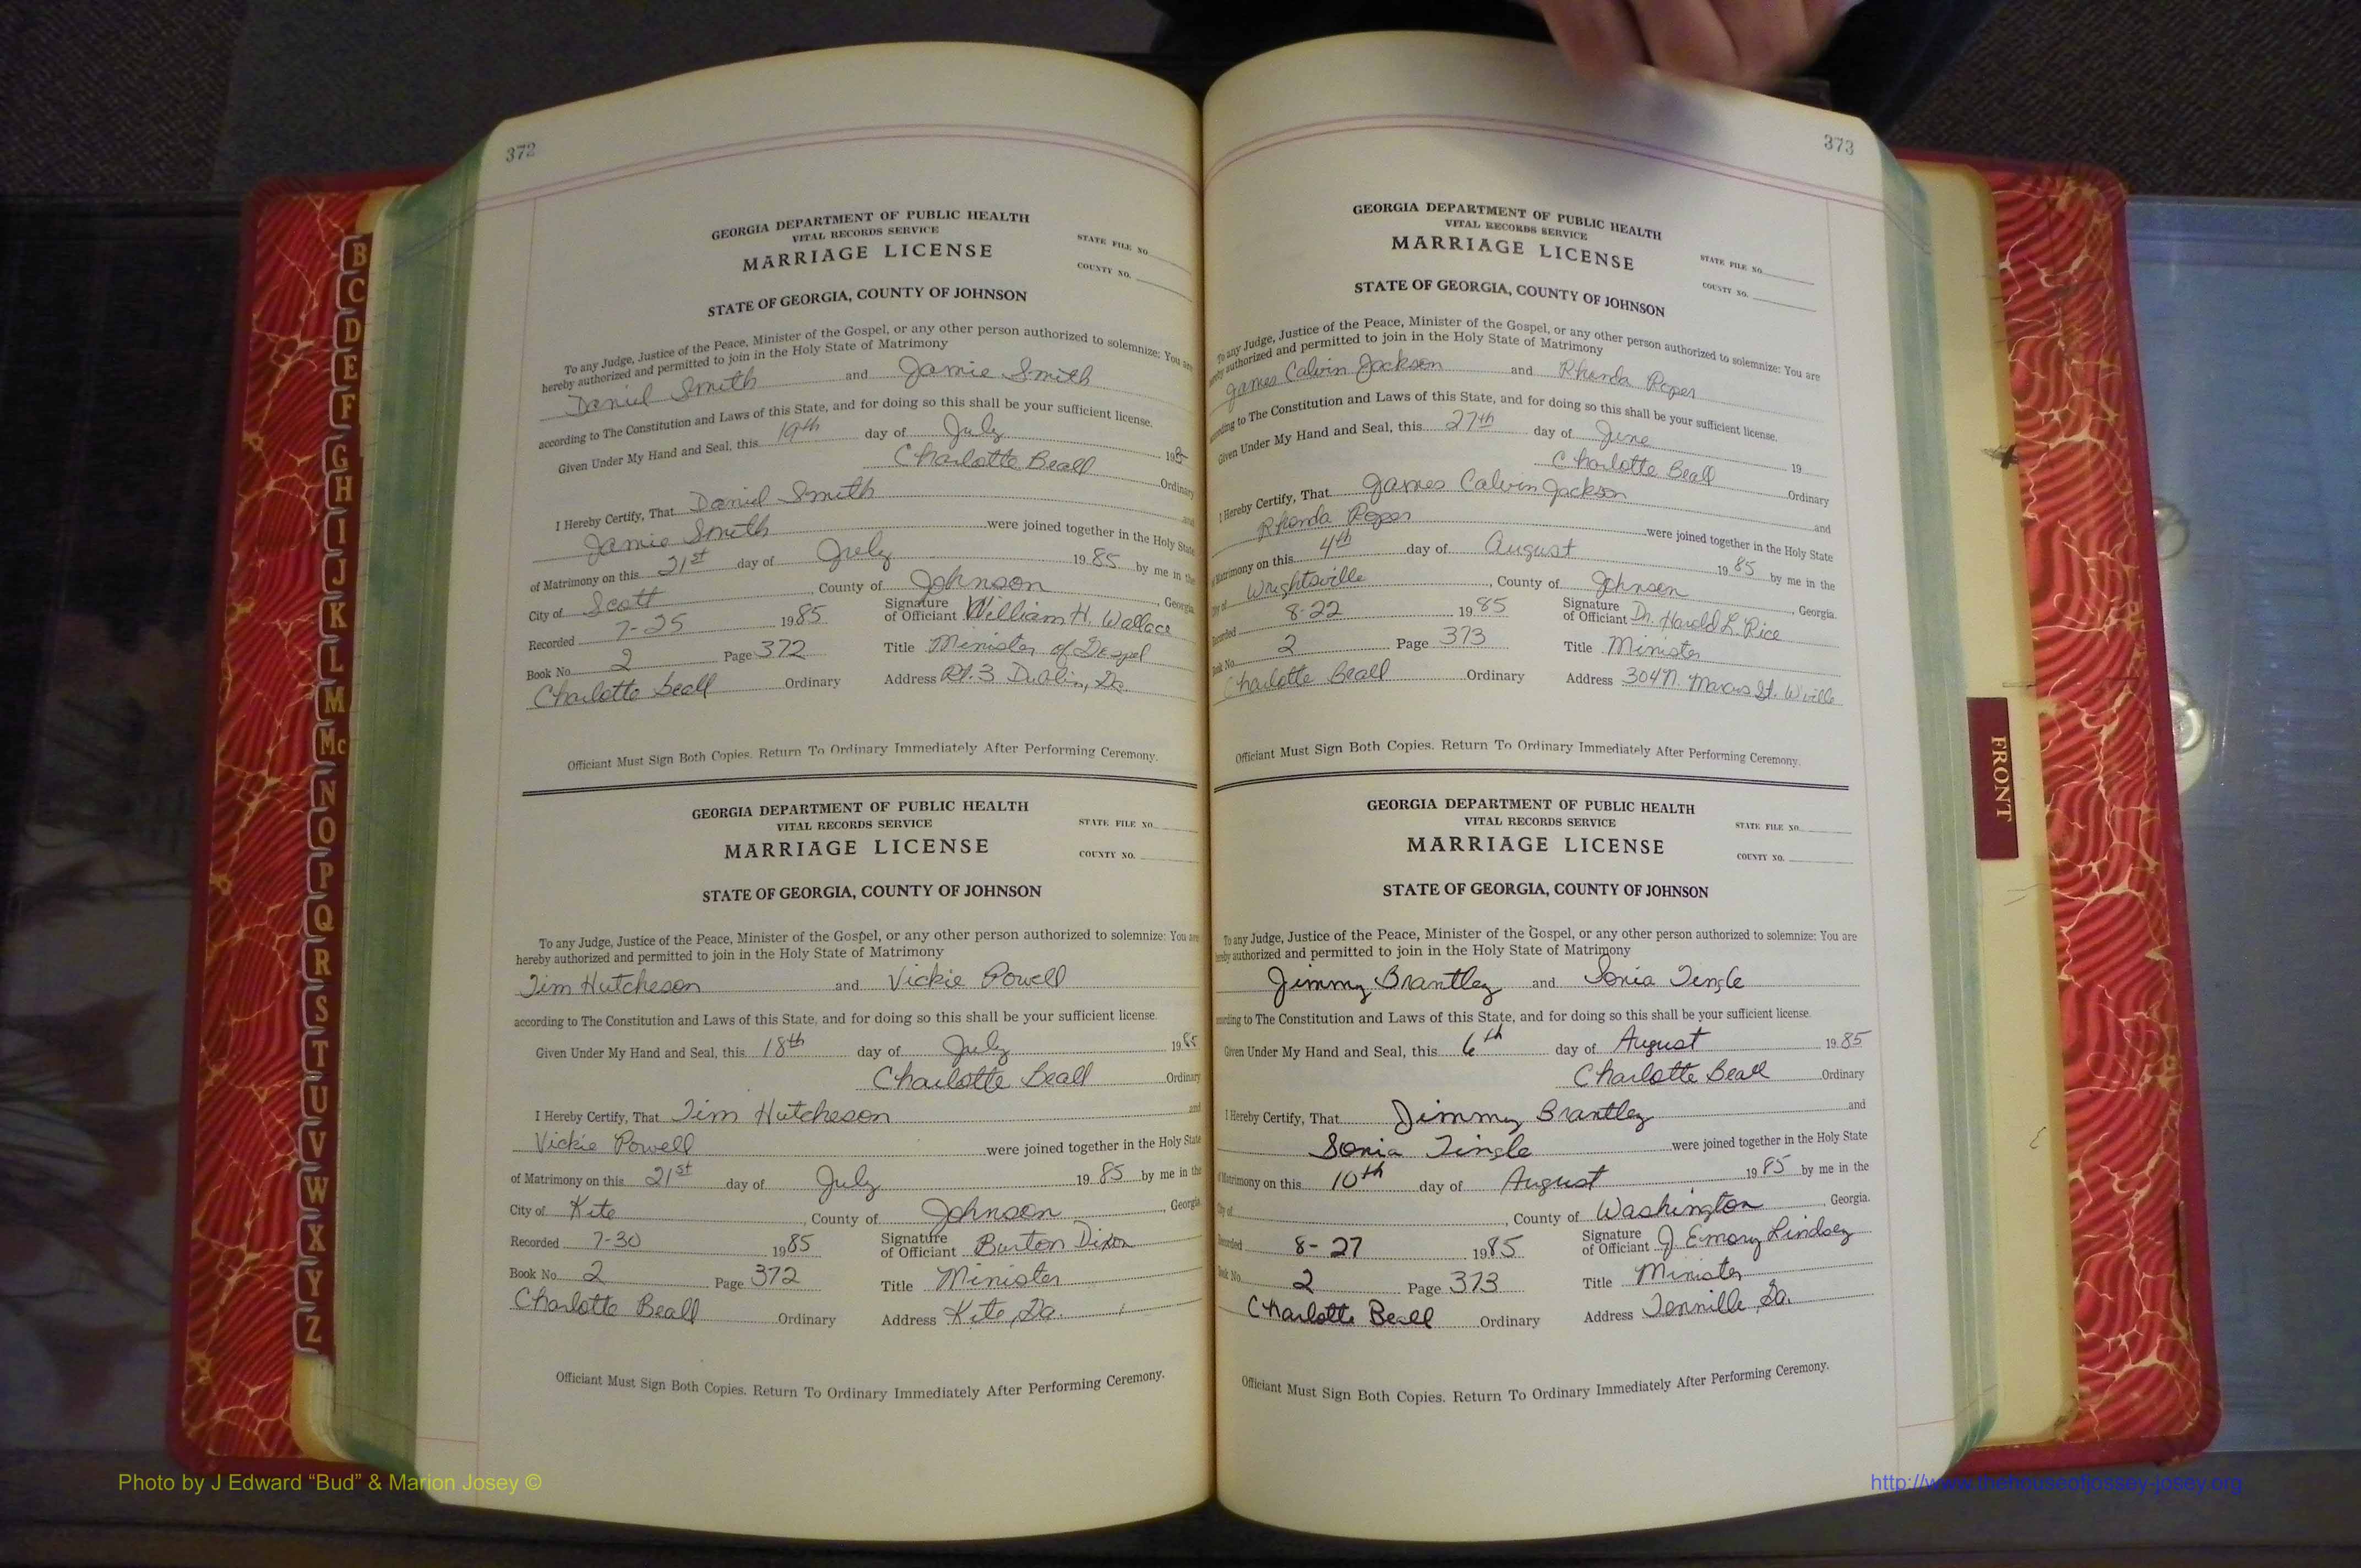 372
GEORGIA DEPARTMENT OF PUBLIC HEALTH
VITAL RECORDS SERVICE
MARRIAGE LICENSE
STATE FILE NO.
COUNTY NO.
STATE OF GEORGIA, COUNTY OF JOHNSON
To any Judge, Justice of the Peace, Minister of the Gospel, or any other person authorized to solemnize: You are
hereby authorized and permitted to join in the Holy State of Matrimony
Daniel Smith and Jamie Smith
according to The Constitution and Laws of this State, and for doing so this shall be your sufficient license.
Given Under My Hand and Seal, this 19th day of July 198
Charlotte Beall Ordinary
I Hereby Certify, That Daniel Smith and
Jamie Smith were joined together in the Holy State
of Matrimony on this 21st day of July 1985 by me in the
City of Scott, County of Johnson, Georgia
Recorded 7-25 1985 Signature of Officiant William H. Wallace
Book No. 2 Page 372 Title Minister of Gospel
Charlotte Beall Ordinary Address Rt. 3 Dublin, Ga.
Officiant Must Sign Both Copies. Return To Ordinary Immediately After Performing Ceremony.
GEORGIA DEPARTMENT OF PUBLIC HEALTH
VITAL RECORDS SERVICE
MARRIAGE LICENSE
STATE FILE NO.
COUNTY NO.
STATE OF GEORGIA, COUNTY OF JOHNSON
To any Judge, Justice of the Peace, Minister of the Gospel, or any other person authorized to solemnize: You are
hereby authorized and permitted to join in the Holy State of Matrimony
Tim Hutcheson and Vickie Powell
according to The Constitution and Laws of this State, and for doing so this shall be your sufficient license.
Given Under My Hand and Seal, this 18th day of July 1985
Charlotte Beall Ordinary
I Hereby Certify, That Tim Hutcheson and
Vickie Powell were joined together in the Holy State
of Matrimony on this 21st day of July 1985 by me in the
City of Kite, County of Johnson, Georgia
Recorded 7-30 1985 Signature of Officiant Burton Dixon
Book No. 2 Page 372 Title Minister
Charlotte Beall Ordinary Address Kite, Ga.
Officiant Must Sign Both Copies. Return To Ordinary Immediately After Performing Ceremony.
373
GEORGIA DEPARTMENT OF PUBLIC HEALTH
VITAL RECORDS SERVICE
MARRIAGE LICENSE
STATE FILE NO.
COUNTY NO.
STATE OF GEORGIA, COUNTY OF JOHNSON
To any Judge, Justice of the Peace, Minister of the Gospel, or any other person authorized to solemnize: You are
hereby authorized and permitted to join in the Holy State of Matrimony
James Calvin Jackson and Rhonda Roper
according to The Constitution and Laws of this State, and for doing so this shall be your sufficient license.
Given Under My Hand and Seal, this 27th day of June 19
Charlotte Beall Ordinary
I Hereby Certify, That James Calvin Jackson and
Rhonda Roper were joined together in the Holy State
of Matrimony on this 4th day of August 1985 by me in the
City of Wrightsville, County of Johnson, Georgia.
Recorded 8-22 1985 Signature of Officiant Dr. Harold L. Rice
Book No. 2 Page 373 Title Minister
Charlotte Beall Ordinary Address 304 N. Marcus St. W'ville
Officiant Must Sign Both Copies. Return To Ordinary Immediately After Performing Ceremony.
GEORGIA DEPARTMENT OF PUBLIC HEALTH
VITAL RECORDS SERVICE
MARRIAGE LICENSE
STATE FILE NO.
COUNTY NO.
STATE OF GEORGIA, COUNTY OF JOHNSON
To any Judge, Justice of the Peace, Minister of the Gospel, or any other person authorized to solemnize: You are
hereby authorized and permitted to join in the Holy State of Matrimony
Jimmy Brantley and Sonia Tingle
according to The Constitution and Laws of this State, and for doing so this shall be your sufficient license.
Given Under My Hand and Seal, this 6th day of August 1985
Charlotte Beall Ordinary
I Hereby Certify, That Jimmy Brantley and
Sonia Tingle were joined together in the Holy State
of Matrimony on this 10th day of August 1985 by me in the
City of , County of Washington, Georgia.
Recorded 8-27 1985 Signature of Officiant J. Emory Lindsey
Book No. 2 Page 373 Title Minister
Charlotte Beall Ordinary Address Tennille, Ga.
Officiant Must Sign Both Copies. Return To Ordinary Immediately After Performing Ceremony.
B
C
D
E
F
G
H
I
J
K
L
M
Mc
N
O
P
Q
R
S
T
U
V
W
X
Y
Z
FRONT
Photo by J Edward “Bud” & Marion Josey ©
http://www.thehouseofjossey-josey.org